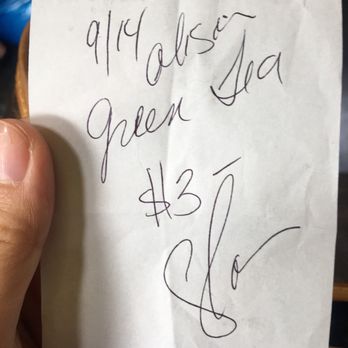 9/14 alison
green tea
$3-